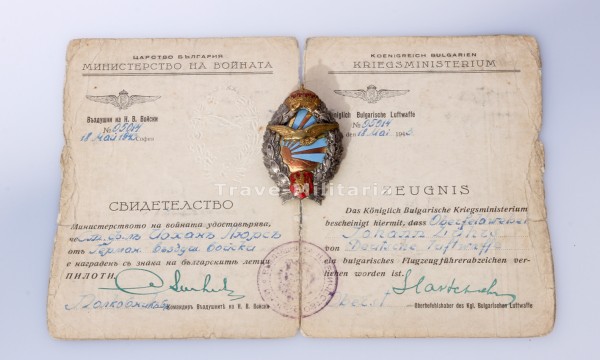 ЦАРСТВО БЪЛГАРИЯ
МИНИСТЕРСТВО НА ВОЙНАТА
Въздушни на Н. В. Войски
№ 05014
18 Май София
СВИДЕТЕЛСТВО
Министерството на войната удостоверява,
че
от Герман. въздуш. войски
е награденъ съ знака на българскитѣ летци
ПИЛОТИ.
Командиръ Въздушнитѣ на Н. В. Войски
KOENIGREICH BULGARIEN
KRIEGSMINISTERIUM
Königlich Bulgarische Luftwaffe
№ 05014
den 18 Mai 1943
ZEUGNIS
Das Königlich Bulgarische Kriegsministerium
bescheinigt hiermit, dass
Johann
von Deutsche Luftwaffe
ein bulgarisches Flugzeugführerabzeichen ver-
liehen worden ist.
Oberbefehlshaber des Kgl. Bulgarischer Luftwaffe
Trave-Militaria